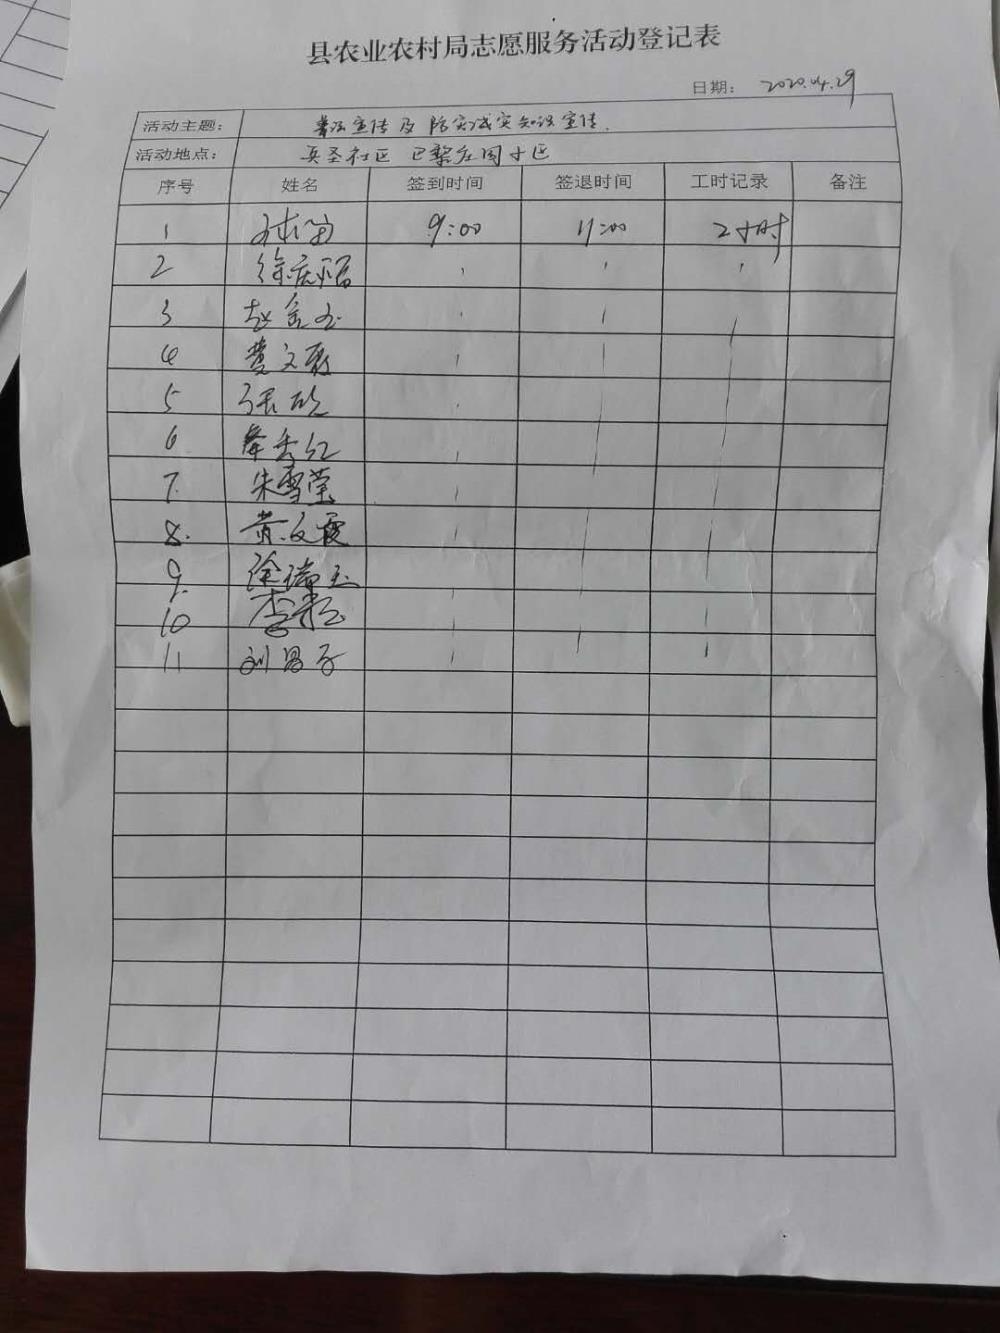 县农业农村局志愿服务活动登记表
日期： 2020.04.29
活动主题： 普法宣传及防灾减灾知识宣传.
活动地点： 兴圣社区 巴黎庄园小区
序号 姓名 签到时间 签退时间 工时记录 备注
1 9:00 11:00 2小时
2 徐庆福
3 赵金玉
4 黄文霞
5 张欣
6 秀红
7. 朱雪莹
8. 黄文霞
9. 徐瑞玉
10 李
11 刘男子